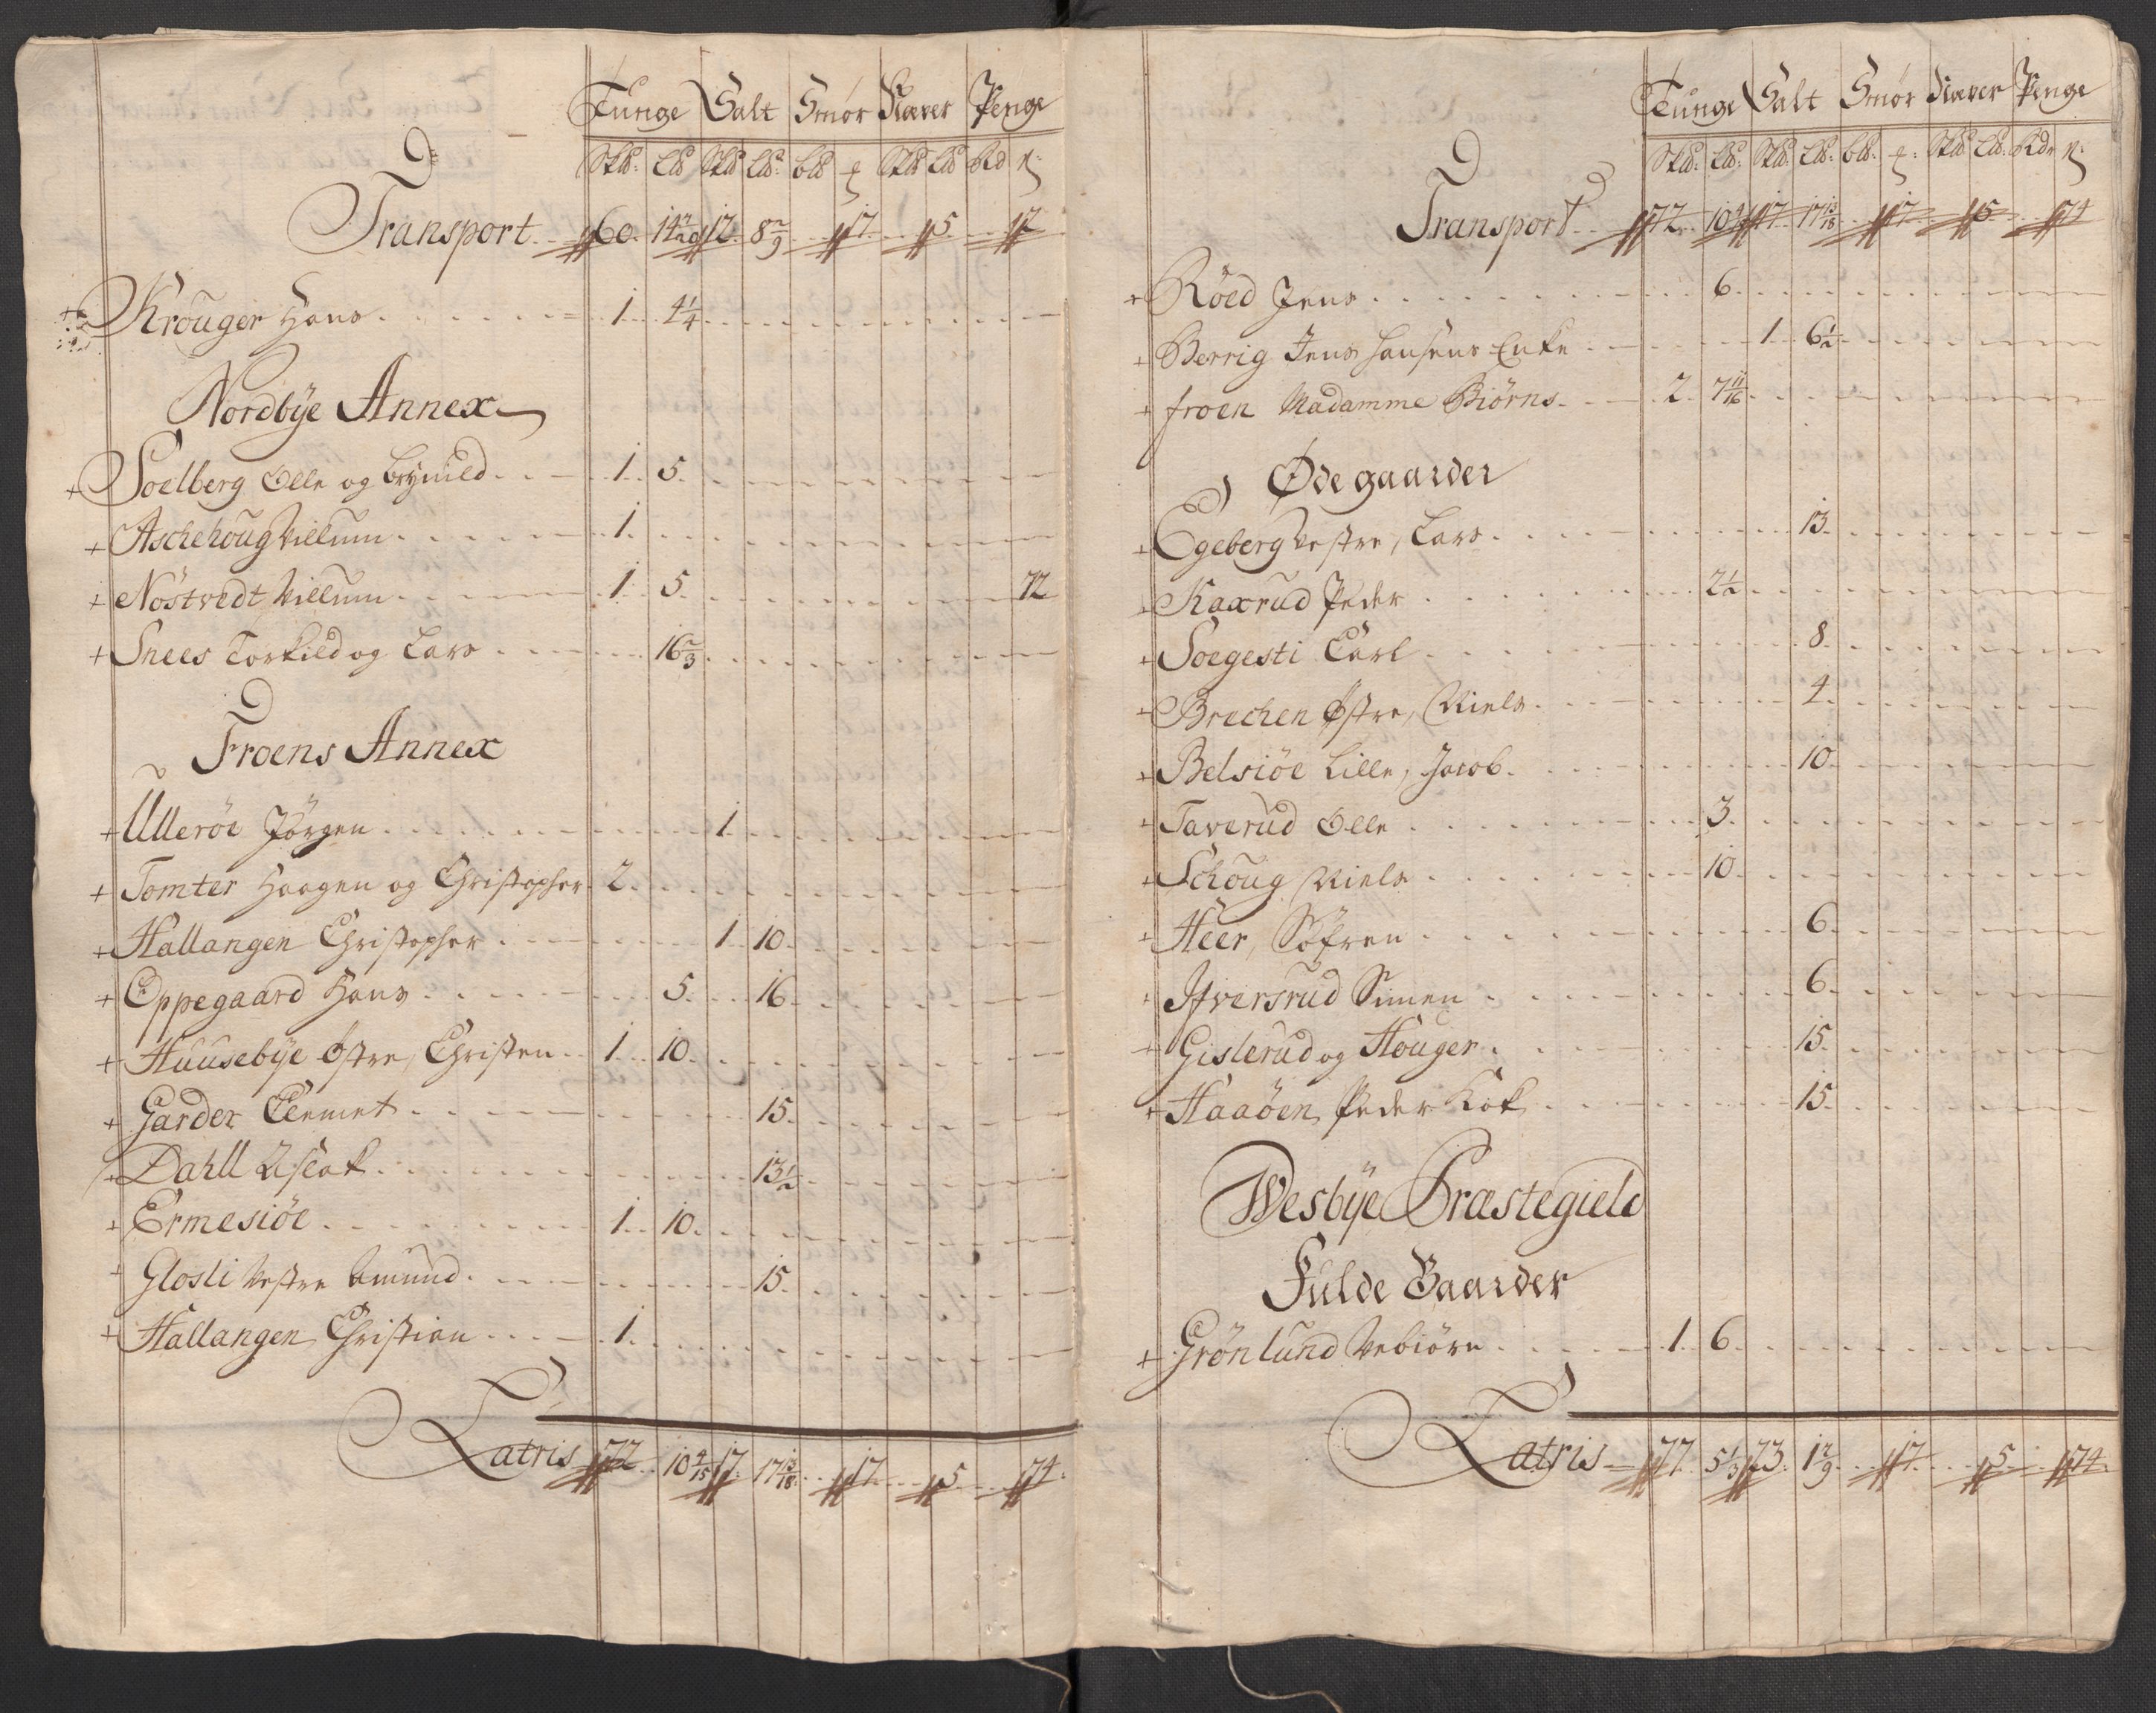 Tunge Salt Smør Staver Penge
Sk℔: L℔ Sk℔ L℔: b℔ Sk℔ L℔ Rd
Transport 60. 14 12. 8 2/9 17. 5 12
+ Krouger Hans 1 4 1/4
Nordbÿe Annex
+ Soelberg Olle og Brÿnild 1 5
+ Aschehoug Villum 1
+ Nöstvedt Villum 1 5 72
+ Snees Torkild og Lars 16 2/3
Froens Annex
+ Ulleröe Jörgen 1
+ Tomter Haagen og Christopher 2
+ Hallangen Christopher 1 10
+ Oppegaard Hans 5 16
+ Huusebÿe Østre, Christen 1 10
+ Garder Clemet 15
+ Dahll Aslak 13 1/2
+ Ermesiöe 1 10
+ Glosli Vestre Amund 15
+ Hallangen Christian 1
Latris 72 10 4/15 17. 17 13/18 17 5 74
Tunge Salt Smör Staver Penge
Sk℔: L℔: Sk℔: L℔: b℔: Sk℔ L℔: Rdr
Transport 72. 10 4/15 17 17 13/18 17 5 74
+ Röed Jens 6
+ Berrig Jens Hansens Enke 1 6 1/2
+ froen Madamme Biörns 2 7 11/16
Øde gaarder
+ Egeberg Vestre, Lars 13
+ Kaxrud Peder 2 1/2
+ Soegesti Carl 8
+ Brechen Østre, Niels 4
+ Belsiöe Lille, Jacob 10
+ Taverud Olle 3
+ Schoug Niels 10
+ Heer, Söfren 6
+ Ifversrud Simen 6
+ Gislerud og Houger 15
+ Haaöen Peder Kok 15
Wesbÿe Præstegield
Fulde Gaarder
+ Grönlund Vebiörn 1 6
Latris 77 5 1/3 73 1 2/9 17 5 74